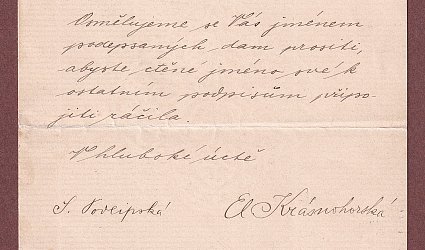 Osmělujeme se Vás jménem
podepsaných dam prositi,
abyste ctěné jméno své k
ostatním podpisům připo-
jiti ráčila.
V hluboké úctě
S. Podlipská
El Krásnohorská